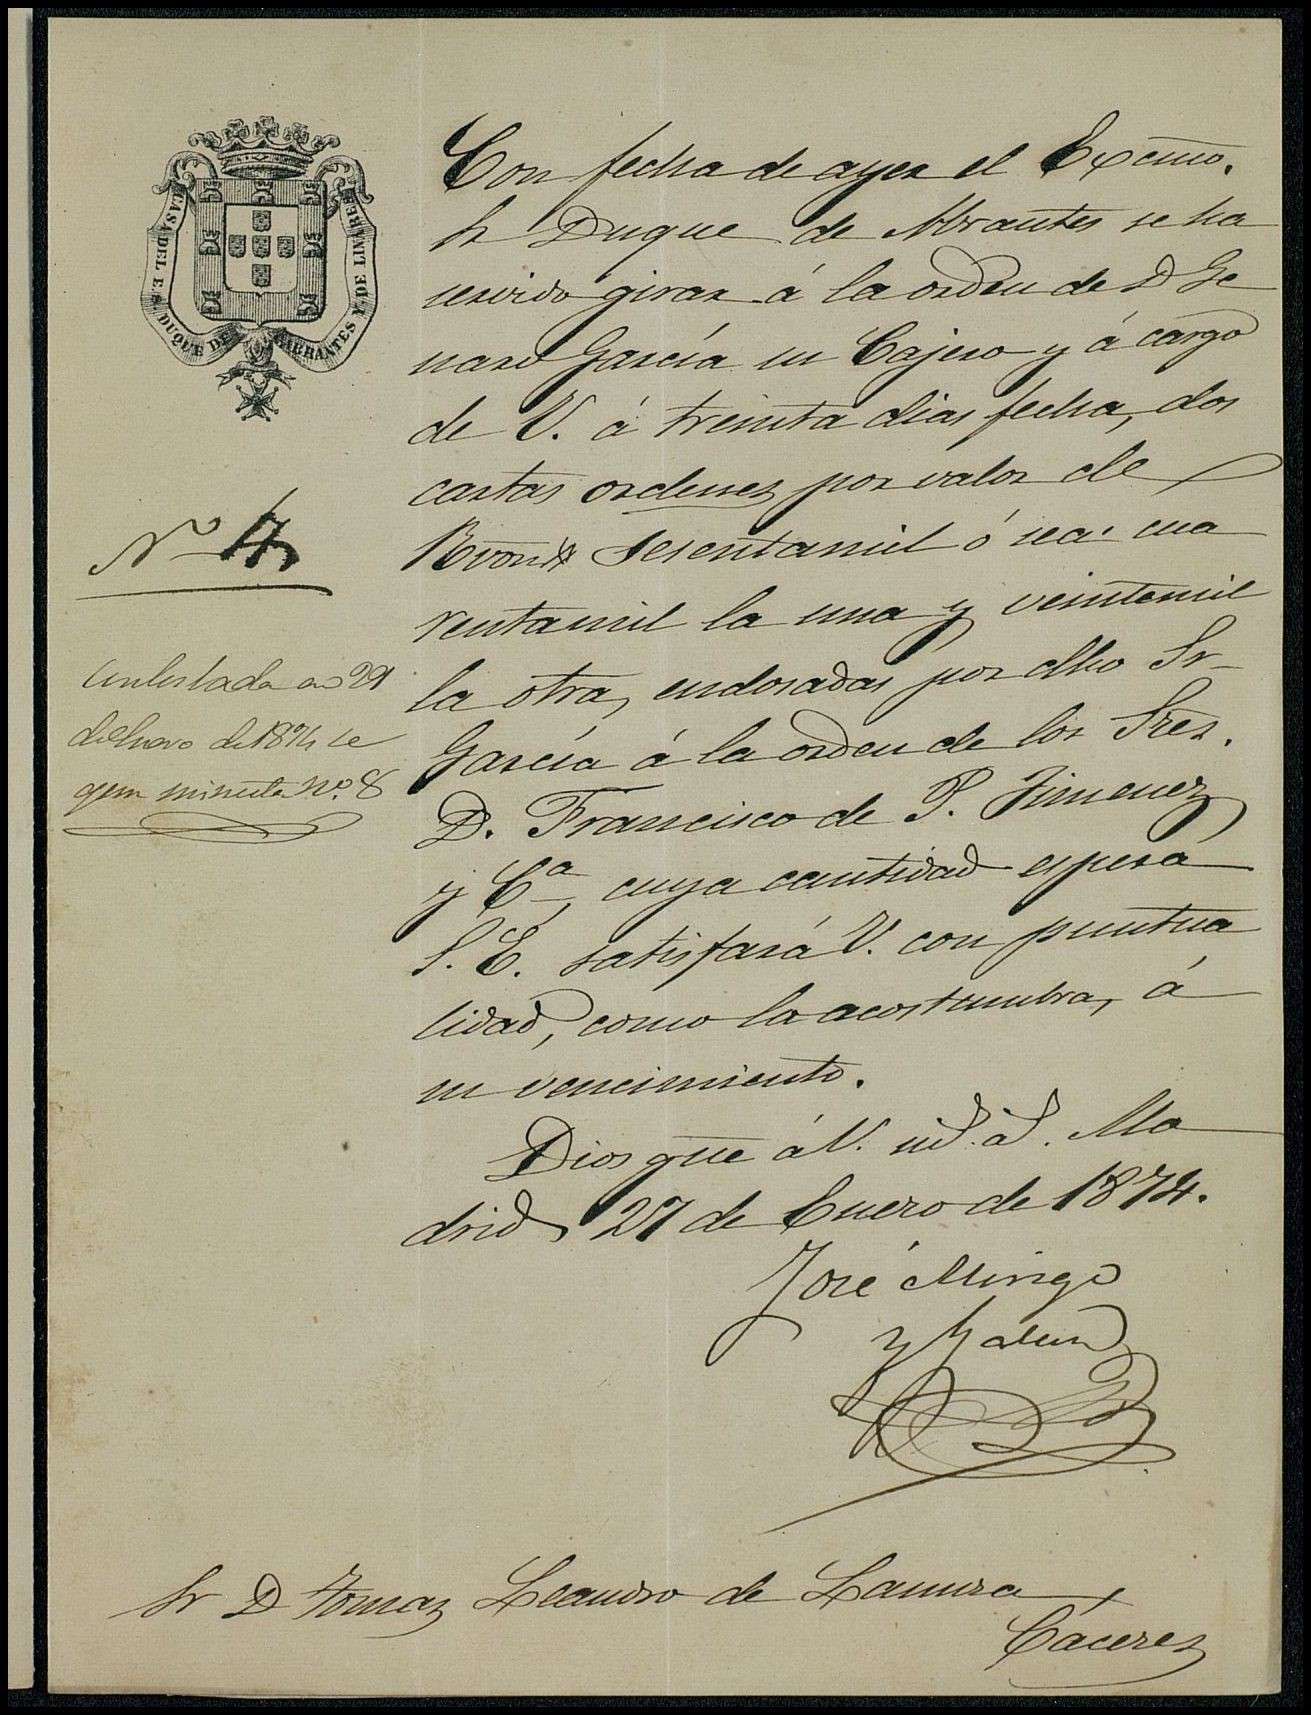 CASA DEL E. S. DUQUE DE ABRANTES Y DE LINARES
Con fecha de ayer el Excmo.
Sr Duque de Abrantes se ha
servido girar á la orden de D Ge
naro García su Cajero y á cargo
de V. á treinta dias fecha, dos
cartas ordenes por valor de
Rvon Sesentamil ó sea cua
rentamil la una y veintemil
la otra, endosadas por dho Sr
García á la orden de los Sres.
D. Francisco de P. Jimenez
y Cª cuya cantidad espera
S. E. satisfará V. con puntua
lidad, como lo acostumbra, á
su vencimiento.
Dios gue á V. ms. as. Ma
drid 27 de Enero de 1874.
José Mingo
y
Nº 4
Contestada en 29
de Enero de 1874 se
gun minuta No. 8
Sr D Tomas Leandro de
Cáceres